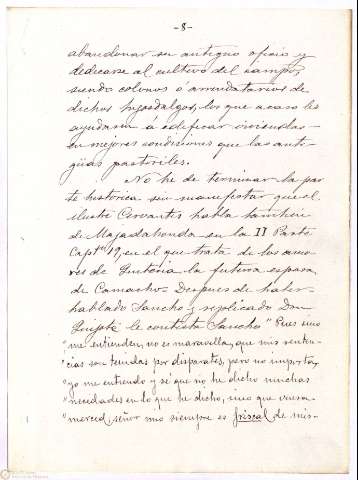 -8-
abandonar su antiguo oficio y
dedicarse al cultivo del campo,
siendo colonos o arrendatarios de
dichos hijosdalgos, los que acaso les
ayudasen á edificar viviendas
en mejores condiciones que las anti-
güas pastoriles.
No he de terminar la par-
te historica sin manifestar que el
ilustre Cervantes habla tambien
de Majadahonda en la II Parte
Capt.º 19, en el que trata de los amo-
res de Quiteria la futura esposa
de Camacho. Despues de haber
hablado Sancho y replicado Don
Quijote le contesta Sancho "Pues sino
"me entienden, no es maravilla, que mis senten-
"cias son tenidas por disparates, pero no importa,
"yo me entiendo y se que no he dicho muchas
"necedades en lo que he dicho, sino que vuesa
"merced, señor mio siempre es friscal de mis-